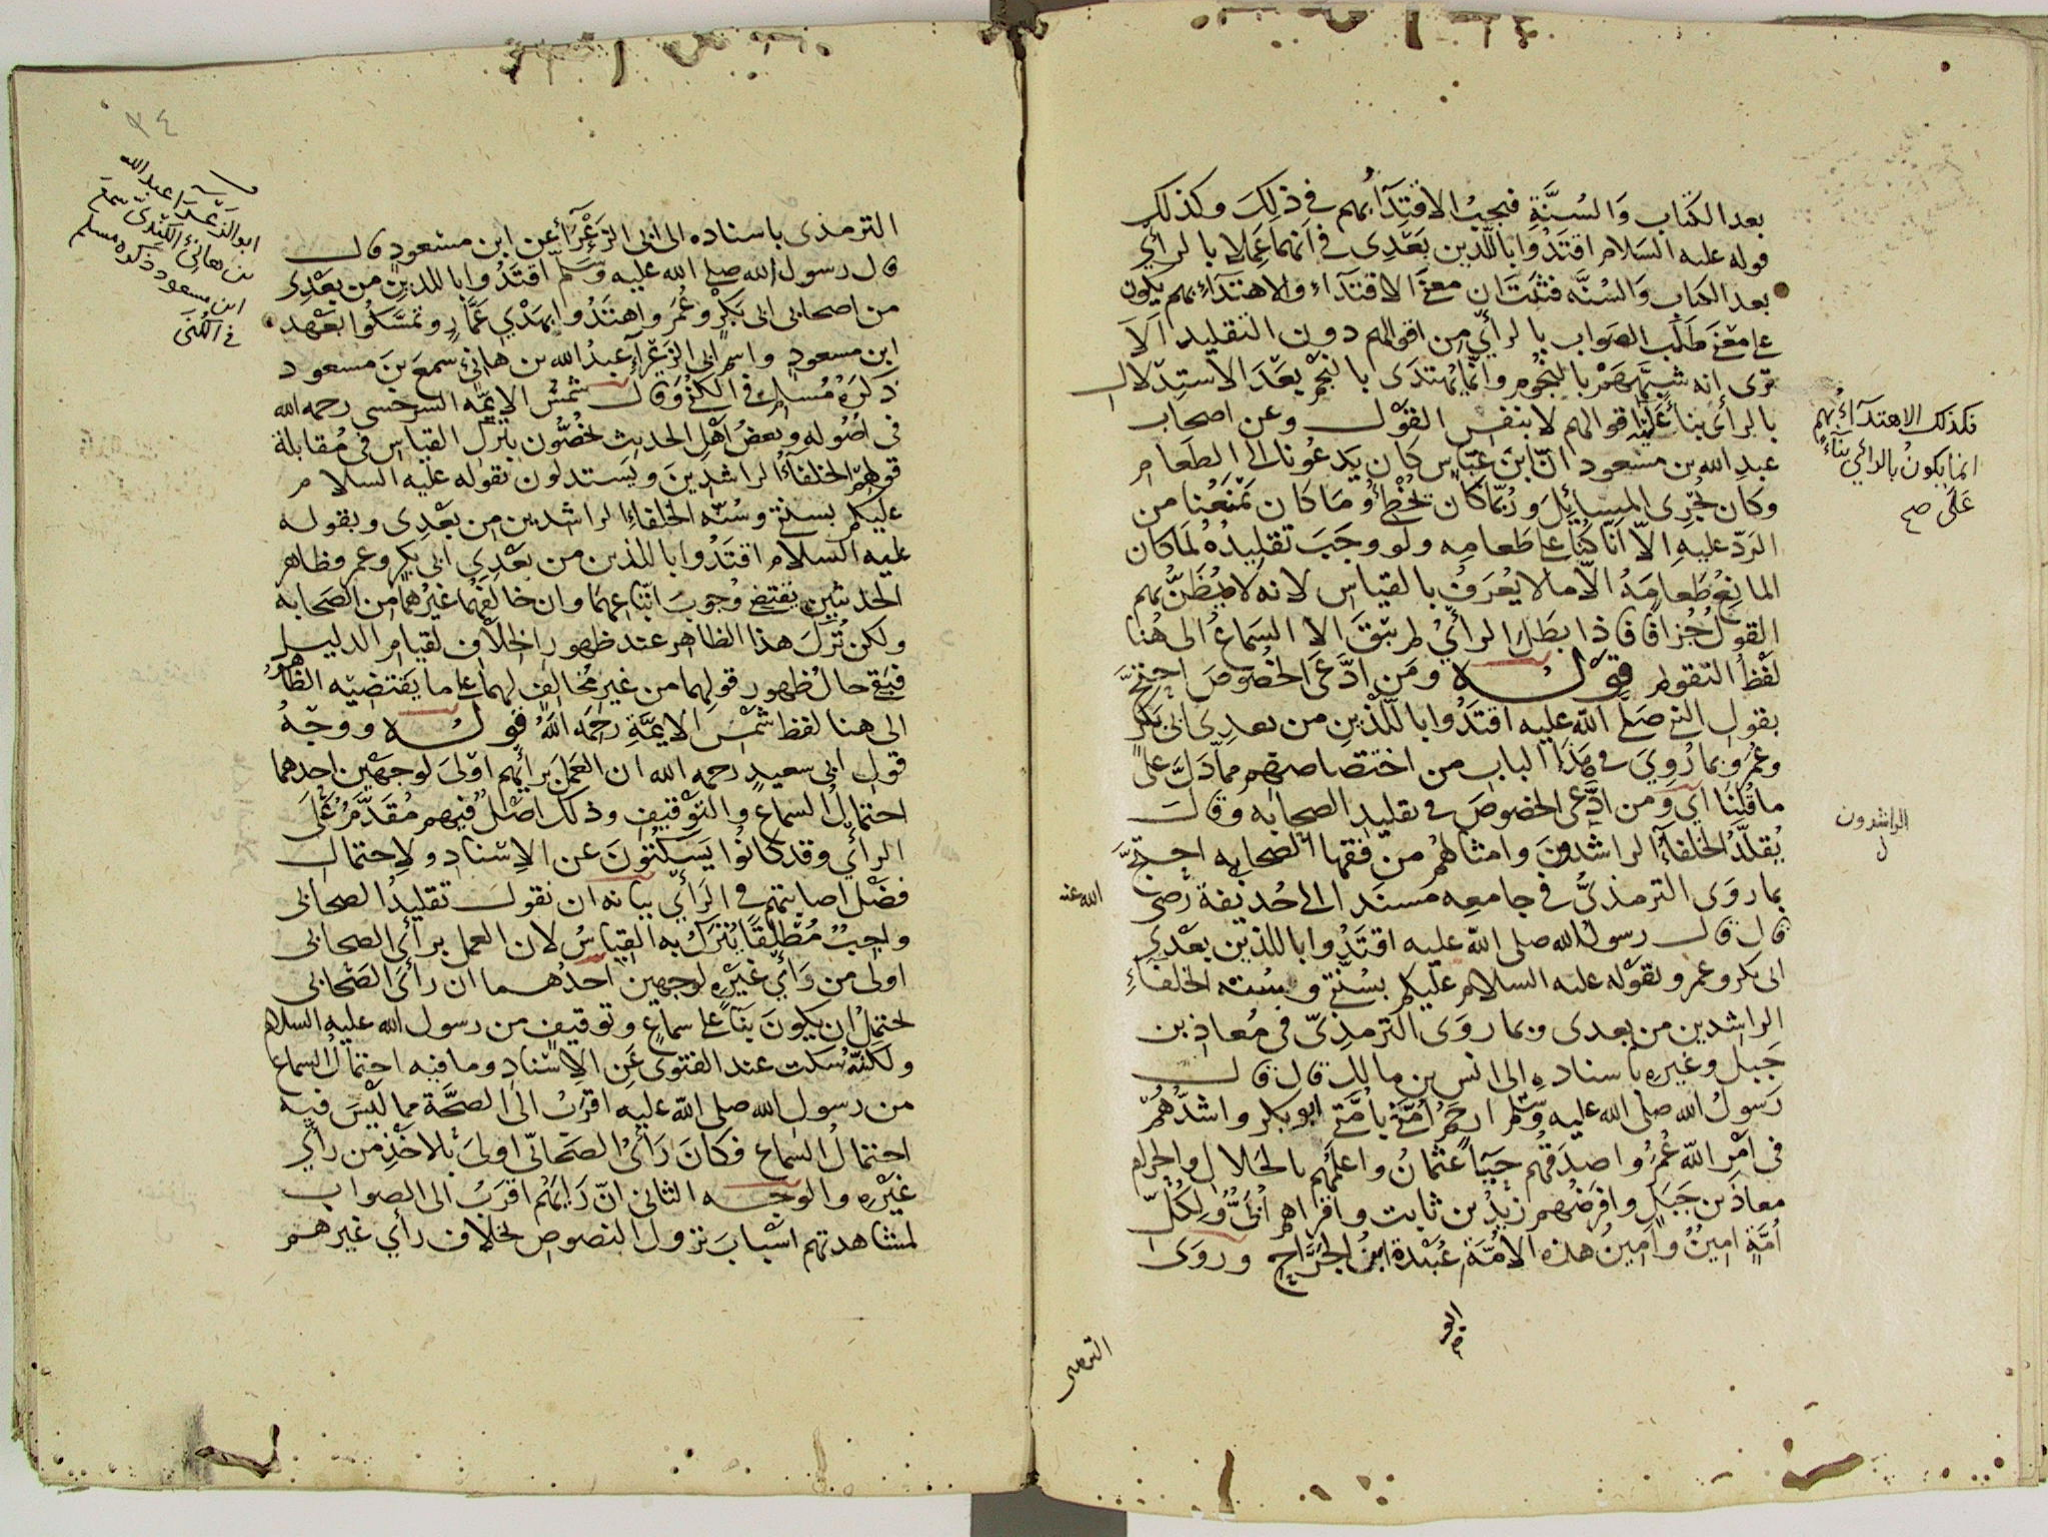 بعد الكتاب وَالسُنَّةِ فيجبُ الاقتِدَآءُ بهم في ذلكَ وكذلك
قوله عليه السَلام اقتَدُوا باللَّذين بَعْدِى في انهما عَمِلا بالرأي
بعد الكتاب وَالسُنَّه فثبت ان معنَى الاقتدَآءِ والاهتدَآءِ بهم يكون
على معنَى طلب الصَواب بالرأي من اقوالهم دون التقليد اَلاَ
ترى انه شبَّهَهُم بالنجُوم وانّما يُهتدَى بالنجم بعْدَ الاستِدلال
بالرأى بنآءً عليه اقوالهم لا بنفس القوْل وعن اصحاب
عبدِ الله بن مسعود انّ ابنَ عبّاس كان يَدعُونا الى الطعَام
وكان يُجرِى المسائِلَ ورُبّما كان يُخطِئُ وما كان يَمْنَعُنا من
الردّ عليهِ الاّ اَنا كُنا على طَعامِه ولو وجَبَ تقليدُهُ لمَا كان
المانِعُ طَعامَهُ الاّ ما لا يُعرَفُ بالقياس لانه لا يُظَنُّ بهم
القولُ جُزافًا فاذا بَطلَ الرأيُ لم يَبْقَ الا السَماعُ الى هُنا
لفْظُ التقويم قوله ومَن ادَّعَى الخُصُوصَ احتجَّ
بقول النبي صَلى الله عليه اقتَدُوا باللّذين من بعدِى ابى بَكرٍ
وعُمرَ وبما رُوِيَ في هَذَا الباب من اختصاصهم مما دَلَّ علَى
ما قُلنَا اى ومن ادَّعى الخصُوصَ في تقليد الصحابه وقالَ
يُقلَّدُ الخلفآءُ الراشدون وامثالهُم من فقهاء الصحابه احتجَّ
بما روَى الترمذىُّ في جامعِه مسنَدا الى حُذيفة رضى
الله عنه
قال قال رسول الله صلى الله عليه اقتَدُوا باللذين بعْدِي
ابى بكر وعمر وبقوْله عليه السلام عليكم بسُنّتي وسُنّه الخلفآءِ
الراشدين من بعدى وبما روَى الترمذِىّ في مُعاذِ بن
جَبل وغيرِه باسنادهِ الى انس بن مالك قال قال
رَسولُ الله صلى الله عليه وسَلّم ارحَمُ اُمّتي باُمّتي ابو بكر واشدُّهُم
في امْرِ الله عُمَرُ واصدَقهُم حَيَآءً عثمانُ واعلمُهم بالحَلال والحرام
معاذ بن جَبَل وافرَضُهم زيْدُ بن ثابت واقرأهم اُبَىُّ ولِكُلّ
اُمَّةٍ امِينٌ واَمِينُ هذه الاُمَّة عُبَيْدة ابنُ الجرّاح وروَى
ابو
صح
الترمدى
فكذلك الاهتدَآءُ بهم
انما يكونُ بالرائي بنآءً
عَلَى صح
الراشدون
ل
٣٤
الترمذى باسناده الى ابى الزَعْرَآءِ عن ابن مسعودٍ قال
قال رسول الله صلى الله عليه وسَلّم اقتَدُوا باللذينِ من بعْدِى
من اصحابى ابى بكْرٍ وعُمَر واهتَدُوا بهَدْيِ عمَّارٍ وتمسَّكُوا بعَهد
ابن مسعودٍ واسم ابى الزَعْرآءِ عبدُ الله بن هانئ سمعَ بنَ مسعود
ذكرَهُ مُسلِم في الكُنَى وقال شمسُ الايمّه السرخسى رحمه الله
في اصُوله وبعضُ اَهْلِ الحديث يخصُّون بتركِ القياس في مُقابلة
قولهِمْ الخلفآءَ الراشدِينَ ويَستدلون بقوله عليه السلام
عليكم بسنتي وسُنّه الخلفاءِ الراشدين من بعْدِى وبقوله
عليه السَلام اقتَدُوا باللذين من بعْدِي ابى بكر وعمر وظاهر
الحديثينِ يَقتَضى وُجوبَ اتباعهما وان خالفَهُما غيرُهُما من الصَحابه
ولكن تُرِكَ هذا الظاهر عند ظهور الخلاف لقيام الدليل
فبَقيَ حالُ ظهور قولهِما من غير مُخالفٍ لهما على ما يقتضيْه الظاهرُ
الى هنا لفظ شمْس الايمَّةِ رحمَه اللهُ قوله ووجْهُ
قول ابى سعيدٍ رحمه الله ان العمَلَ برأيهم اوْلَى لوجهَيْن احدهما
احتمالُ السماع والتوْقيف وذلك اصْلٌ فيهم مُقدَّمٌ عَلَى
الرأيِ وقد كانوُا يَسكتُونَ عن الاِسْناد ولاِحتمال
فضْل اصابتهم في الرَأىِ بيَانه ان نقول تقليدُ الصحابى
واجبٌ مُطلقًا يُترَكُ به القِياسُ لان العمل برأىِ الصحابى
اولى من رَأىِ غيْرِهِ لوجهين احدُهما ان رأىَ الصَحابى
يحتمِلُ ان يكونَ بنآءً على سماعٍ وتوقيفٍ من رسول الله عليه السلام
ولكنّهُ سكت عند الفتوى عَنِ الاِسْنادِ وما فيه احتمالُ السماع
من رسول الله صلى الله عليه اقرَبُ الى الصحَّة مما ليْسَ فيه
احتمالُ السَماع فكانَ رَأىُ الصَحابيّ اولىَ بالاخْذِ من رأي
غيْرِه والوجه الثانى انّ رَايَهُم اقرَبُ الى الصواب
لمشاهدتهم اسْبابَ نزول النصوص بخلاف رأي غيرهم
ابو الزعراء عبد الله
بن هانئ الكِندىّ سمع
ابن مسعود ذكره مسلم
في الكُنَى